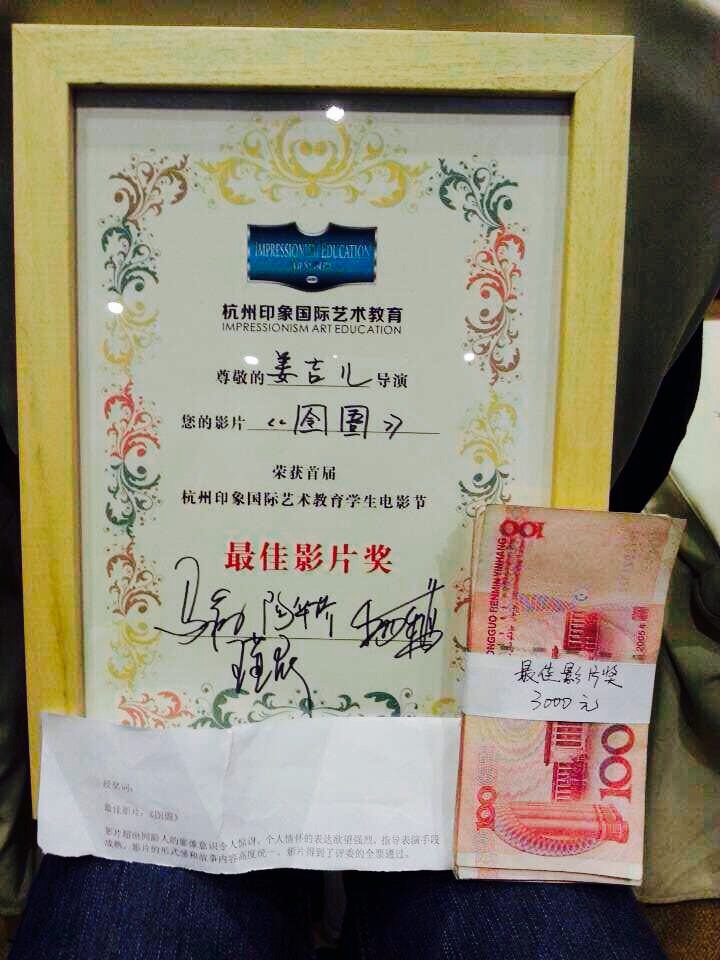 IMPRESSIONISM EDUCATION
杭州印象国际艺术教育
IMPRESSIONISM ART EDUCATION
尊敬的姜吉儿导演
您的影片《囹圄》
荣获首届
杭州印象国际艺术教育学生电影节
最佳影片奖
授奖词:
最佳影片:《囹圄》
影片超出同龄人的影像意识令人惊讶,个人情怀的表达欲望强烈,指导表演手段
成熟,影片的形式感和故事内容高度统一,影片得到了评委的全票通过。
100
ONGGUO RENMIN YINHANG
2005年
最佳影片奖
3000元
100
100